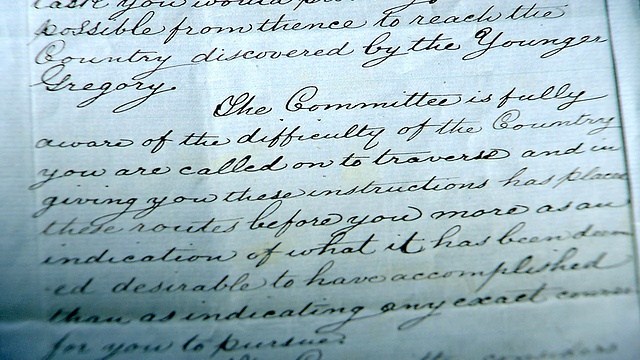 possible from thence to reach the
Country discovered by the Younger
Gregory.
The Committee is fully
aware of the difficulty of the Country
you are called on to traverse and in
giving you these instructions has placed
these routes before you more as an
indication of what it has been deem
-ed desirable to have accomplished
than as indicating any exact course
for you to pursue.